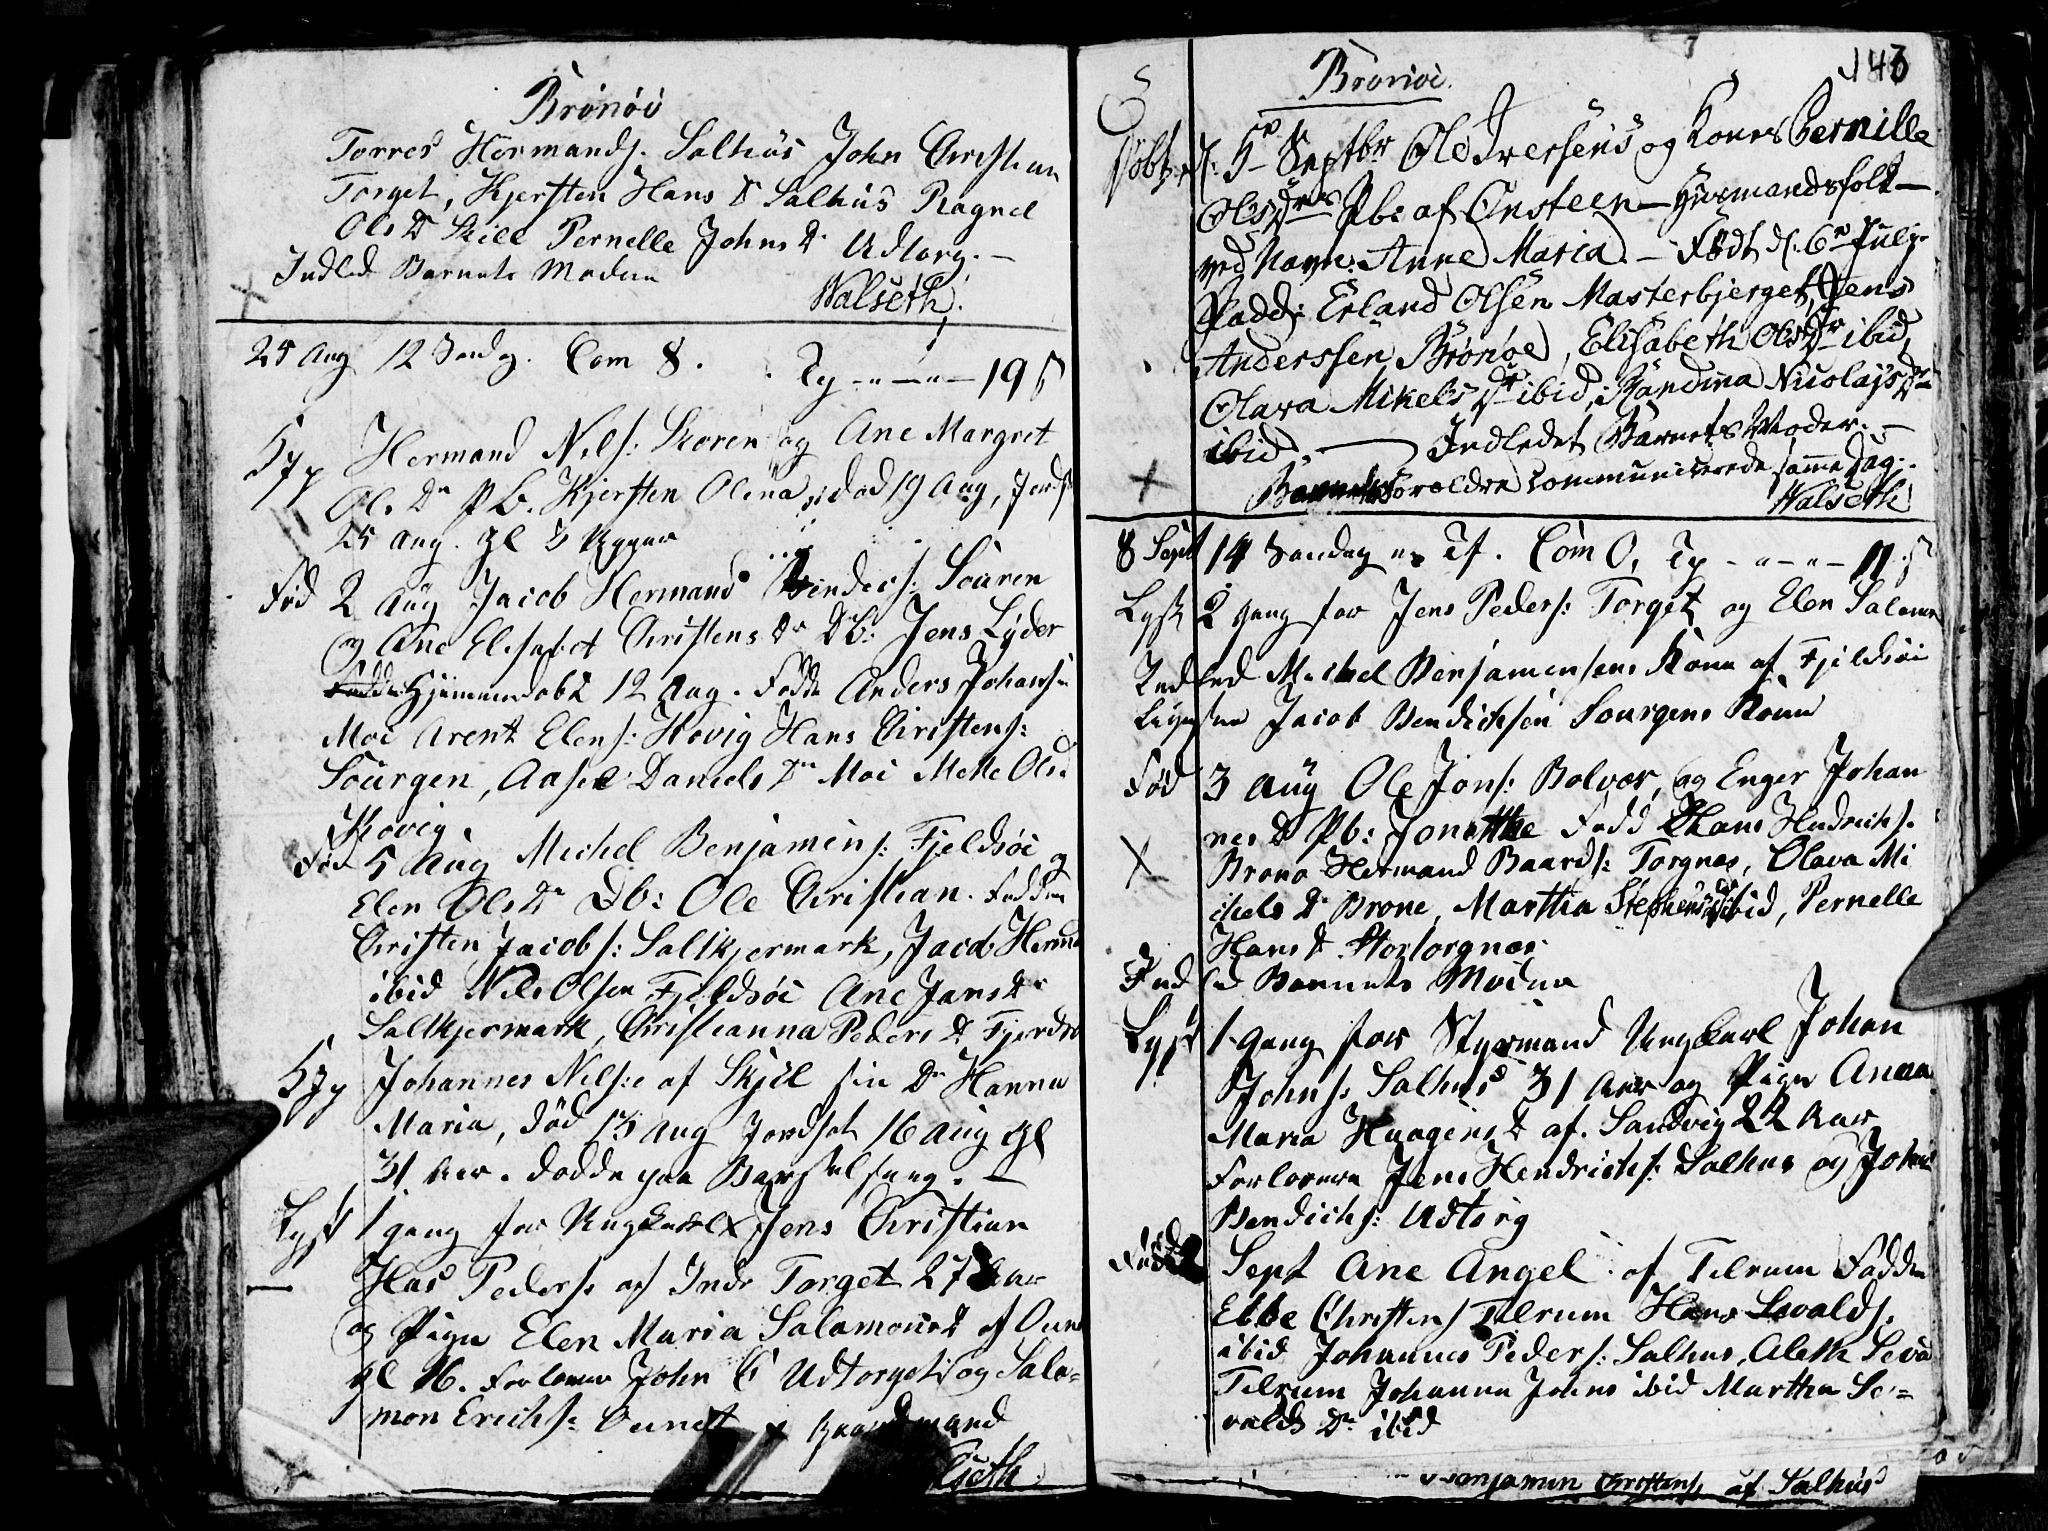 Brönöi
Torres Hermands. Salhüs John Christian
Torget, Kjersten Hans D Salhüs Ragnel
Ols Dr Skiel Pernelle Johns Dr Udtorg. —
Indled Barnets Moder
Walseth.
25 Aug 12 Sondg. Com 8.
19 ß
Hermand Nils: Skoren og Ane Margret
Ols Dr P B. Kjersten Olena, död 19 Aug, Jords
25 Aug. gl 3 Uger
Fød 2 Aug Jacob Hermand Souren
og Ane Elisabet Christens Dr Db: Jens Lyder
Hjemmedøbt 12 Aug. Fadd Anders Johans
Moe Arent Elens: Hovig Hans Christens:
Sourgen, Aasel Daniels Dr Moi Mette Ols
Skovig.
Fød 5 Aug Michel Benjamins: Fjeldsöi og
Elen Ols Dr Db: Ole Christian. Fadder
Christen Jacobs: Salkjermark, Jacob Herm
ibid Nils Olsen Fjeldsöi Ane Jans Dr
Salkjermark, Christianna Peders D
Johannes Nils:e af Skjel sin Dr Hanna
Maria, død 13 Aug Jordsat 16 Aug gl
31 Aar. Døde paa Barselseng. —
Lyst 1 gang for Ungkarl Jens Christian
Has Peders af Indr Torget 27 Aar
og Pige Elen Maria Salamons D af
gl 16. Forlover John Udtorget og Salo=
mon Erichs:
143
Brönöe.
Döbt d: 5te Septbr Ole Iversens og Kones Pernille
Ols Drs Pb: af Önsteen — Huusmandsfolk —
ved Navn: Anne Maria. — Födt d: 6te July.
Fadd: Erland Olsen Masterbjerget, Jens
Anderssen Brönöe, Elisabeth Ols Dr ibid,
Olava Mikels Dr ibid, Randina Nicolajs Dr
ibid. — Indledet Barnets Moder. —
Barnets Foreldre communicerede samme Dag.
Walseth
8 Sept 14 Sondag Tf. Com 0.
Lyst 2 gang for Jens Peders: Torget og Elen Salamo
Indled Michel Benjamensens Kone af Fjeldsöi
Jacob Bendichsen Sourgens Kone
Fød 3 Aug Ole Jons: Bolvær, og Enger Johan
nes D Pb: Jonetthe Fadd Hans Hndrichs.
Brono Hermand Baards: Torgnæs, Olava Mi
chels Dr Brone, Martha Stephens Dr ibid, Pernelle
Hans D Stortorgnæs
Indled Barnets Moder
Lyst 1 gang for Styrmand Ungkarl Johan
Johns. Salhus 31 Aar og Pige Anna
Maria Haagens D af. Sandvig 22 Aar
Forlovere Jens Hendrichs: Salhus og Johns
Bendichs: Udtorg
Sept Ane Angel af Tilrum Fadder
Ebbe Christens Tilrum Hans Sevalds.
ibid Johannes Peders: Salhus, Aleth Seva
Tilrum Johanna Johns ibid Martha Se=
valds Dr ibid
Benjamen Christens af Salhüs